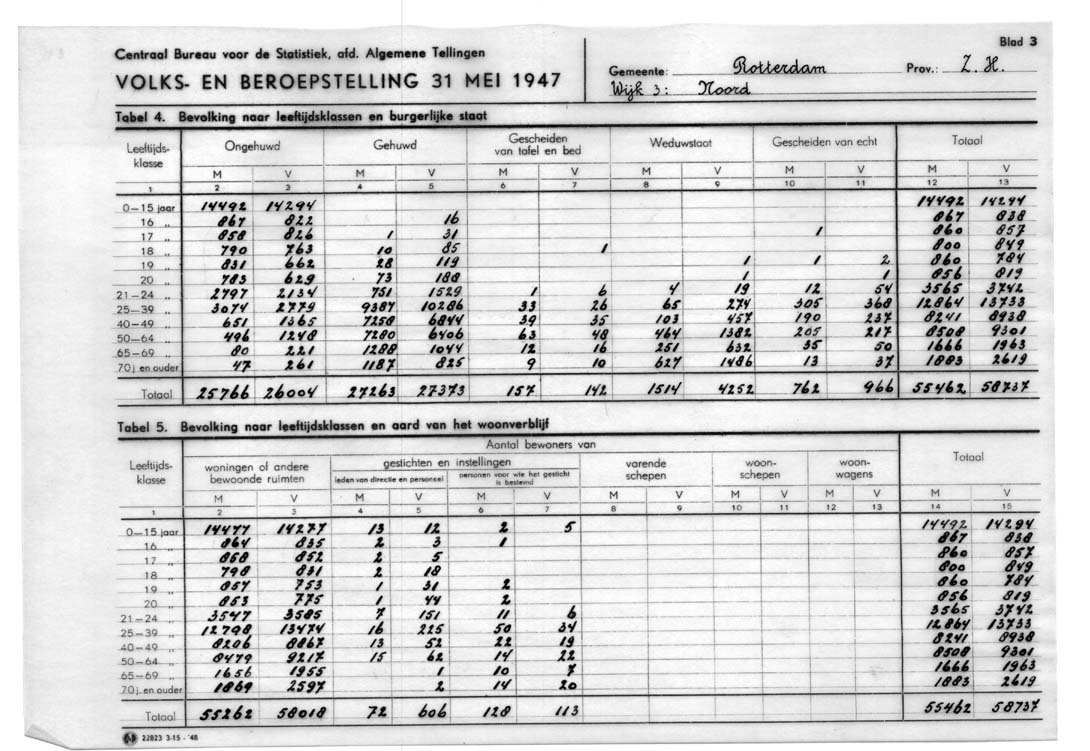 Blad 3
Centraal Bureau voor de Statistiek, afd. Algemene Tellingen
VOLKS- EN BEROEPSTELLING 31 MEI 1947
Gemeente: Rotterdam Prov.: Z. H.
Wijk 3: Noord
Tabel 4. Bevolking naar leeftijdsklassen en burgerlijke staat
Leeftijds-klasse Ongehuwd Gehuwd Gescheiden van tafel en bed Weduwstaat Gescheiden van echt Totaal
M V M V M V M V M V M V
1 2 3 4 5 6 7 8 9 10 11 12 13
0—15 jaar 14492 14294 14492 14294
16 „ 867 822 16 867 838
17 „ 858 826 1 31 1 860 857
18 „ 790 763 10 85 1 800 849
19 „ 831 662 28 119 1 1 2 860 784
20 „ 783 629 73 188 1 1 856 819
21—24 „ 2797 2134 751 1529 1 6 4 19 12 54 3565 3742
25—39 „ 3074 2779 9387 10286 33 26 65 274 305 368 12864 13733
40—49 „ 651 1365 7258 6844 39 35 103 457 190 237 8241 8938
50—64 „ 496 1248 7280 6406 63 48 464 1382 205 217 8508 9301
65—69 „ 80 221 1288 1044 12 16 251 632 35 50 1666 1963
70 j. en ouder 47 261 1187 825 9 10 627 1486 13 37 1883 2619
Totaal 25766 26004 27263 27373 157 142 1514 4252 762 966 55462 58737
Tabel 5. Bevolking naar leeftijdsklassen en aard van het woonverblijf
Aantal bewoners van
Leeftijds-klasse woningen of andere bewoonde ruimten gestichten en instellingen varende schepen woon-schepen woon-wagens Totaal
leden van directie en personeel personen voor wie het gesticht is bestemd
M V M V M V M V M V M V M V
1 2 3 4 5 6 7 8 9 10 11 12 13 14 15
0—15 jaar 14477 14277 13 12 2 5 14492 14294
16 „ 864 835 2 3 1 867 838
17 „ 858 852 2 5 860 857
18 „ 798 831 2 18 800 849
19 „ 857 753 1 31 2 860 784
20 „ 853 775 1 44 2 856 819
21—24 „ 3547 3585 7 151 11 6 3565 3742
25—39 „ 12798 13474 16 225 50 34 12864 13733
40—49 „ 8206 8867 13 52 22 19 8241 8938
50—64 „ 8479 9217 15 62 14 22 8508 9301
65—69 „ 1656 1955 1 10 7 1666 1963
70 j. en ouder 1869 2597 2 14 20 1883 2619
Totaal 55262 58018 72 606 128 113 55462 58737
22823 3-15 - '48